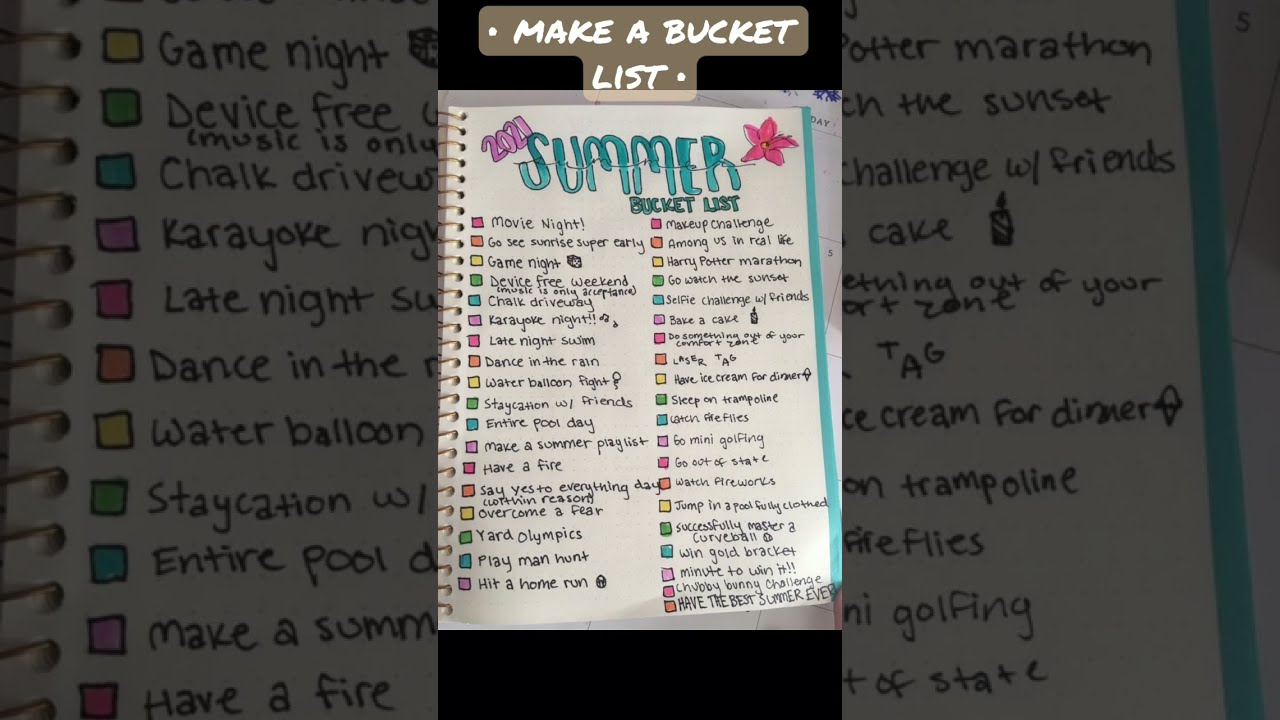 • MAKE A BUCKET
LIST •
2021
SUMMER
BUCKET LIST
Movie Night!
Go see sunrise super early
Game night
Device free weekend
(music is only acceptance)
Chalk driveway
Karayoke night!!
Late night swim
Dance in the rain
Water balloon fight
Staycation w/ friends
Entire pool day
make a summer playlist
Have a fire
Say yes to everything day
(within reason)
overcome a fear
Yard Olympics
Play man hunt
Hit a home run
Makeup challenge
Among us in real life
Harry Potter marathon
Go watch the sunset
Selfie challenge w/ friends
Bake a cake
Do something out of your
comfort zone
LASER TAG
Have ice cream for dinner
Sleep on trampoline
Catch fireflies
Go mini golfing
Go out of state
Watch fireworks
Jump in a pool fully clothed
Successfully master a
curveball
win gold bracket
minute to win it!!
Chubby bunny Challenge
HAVE THE BEST SUMMER EVER
DAY
5